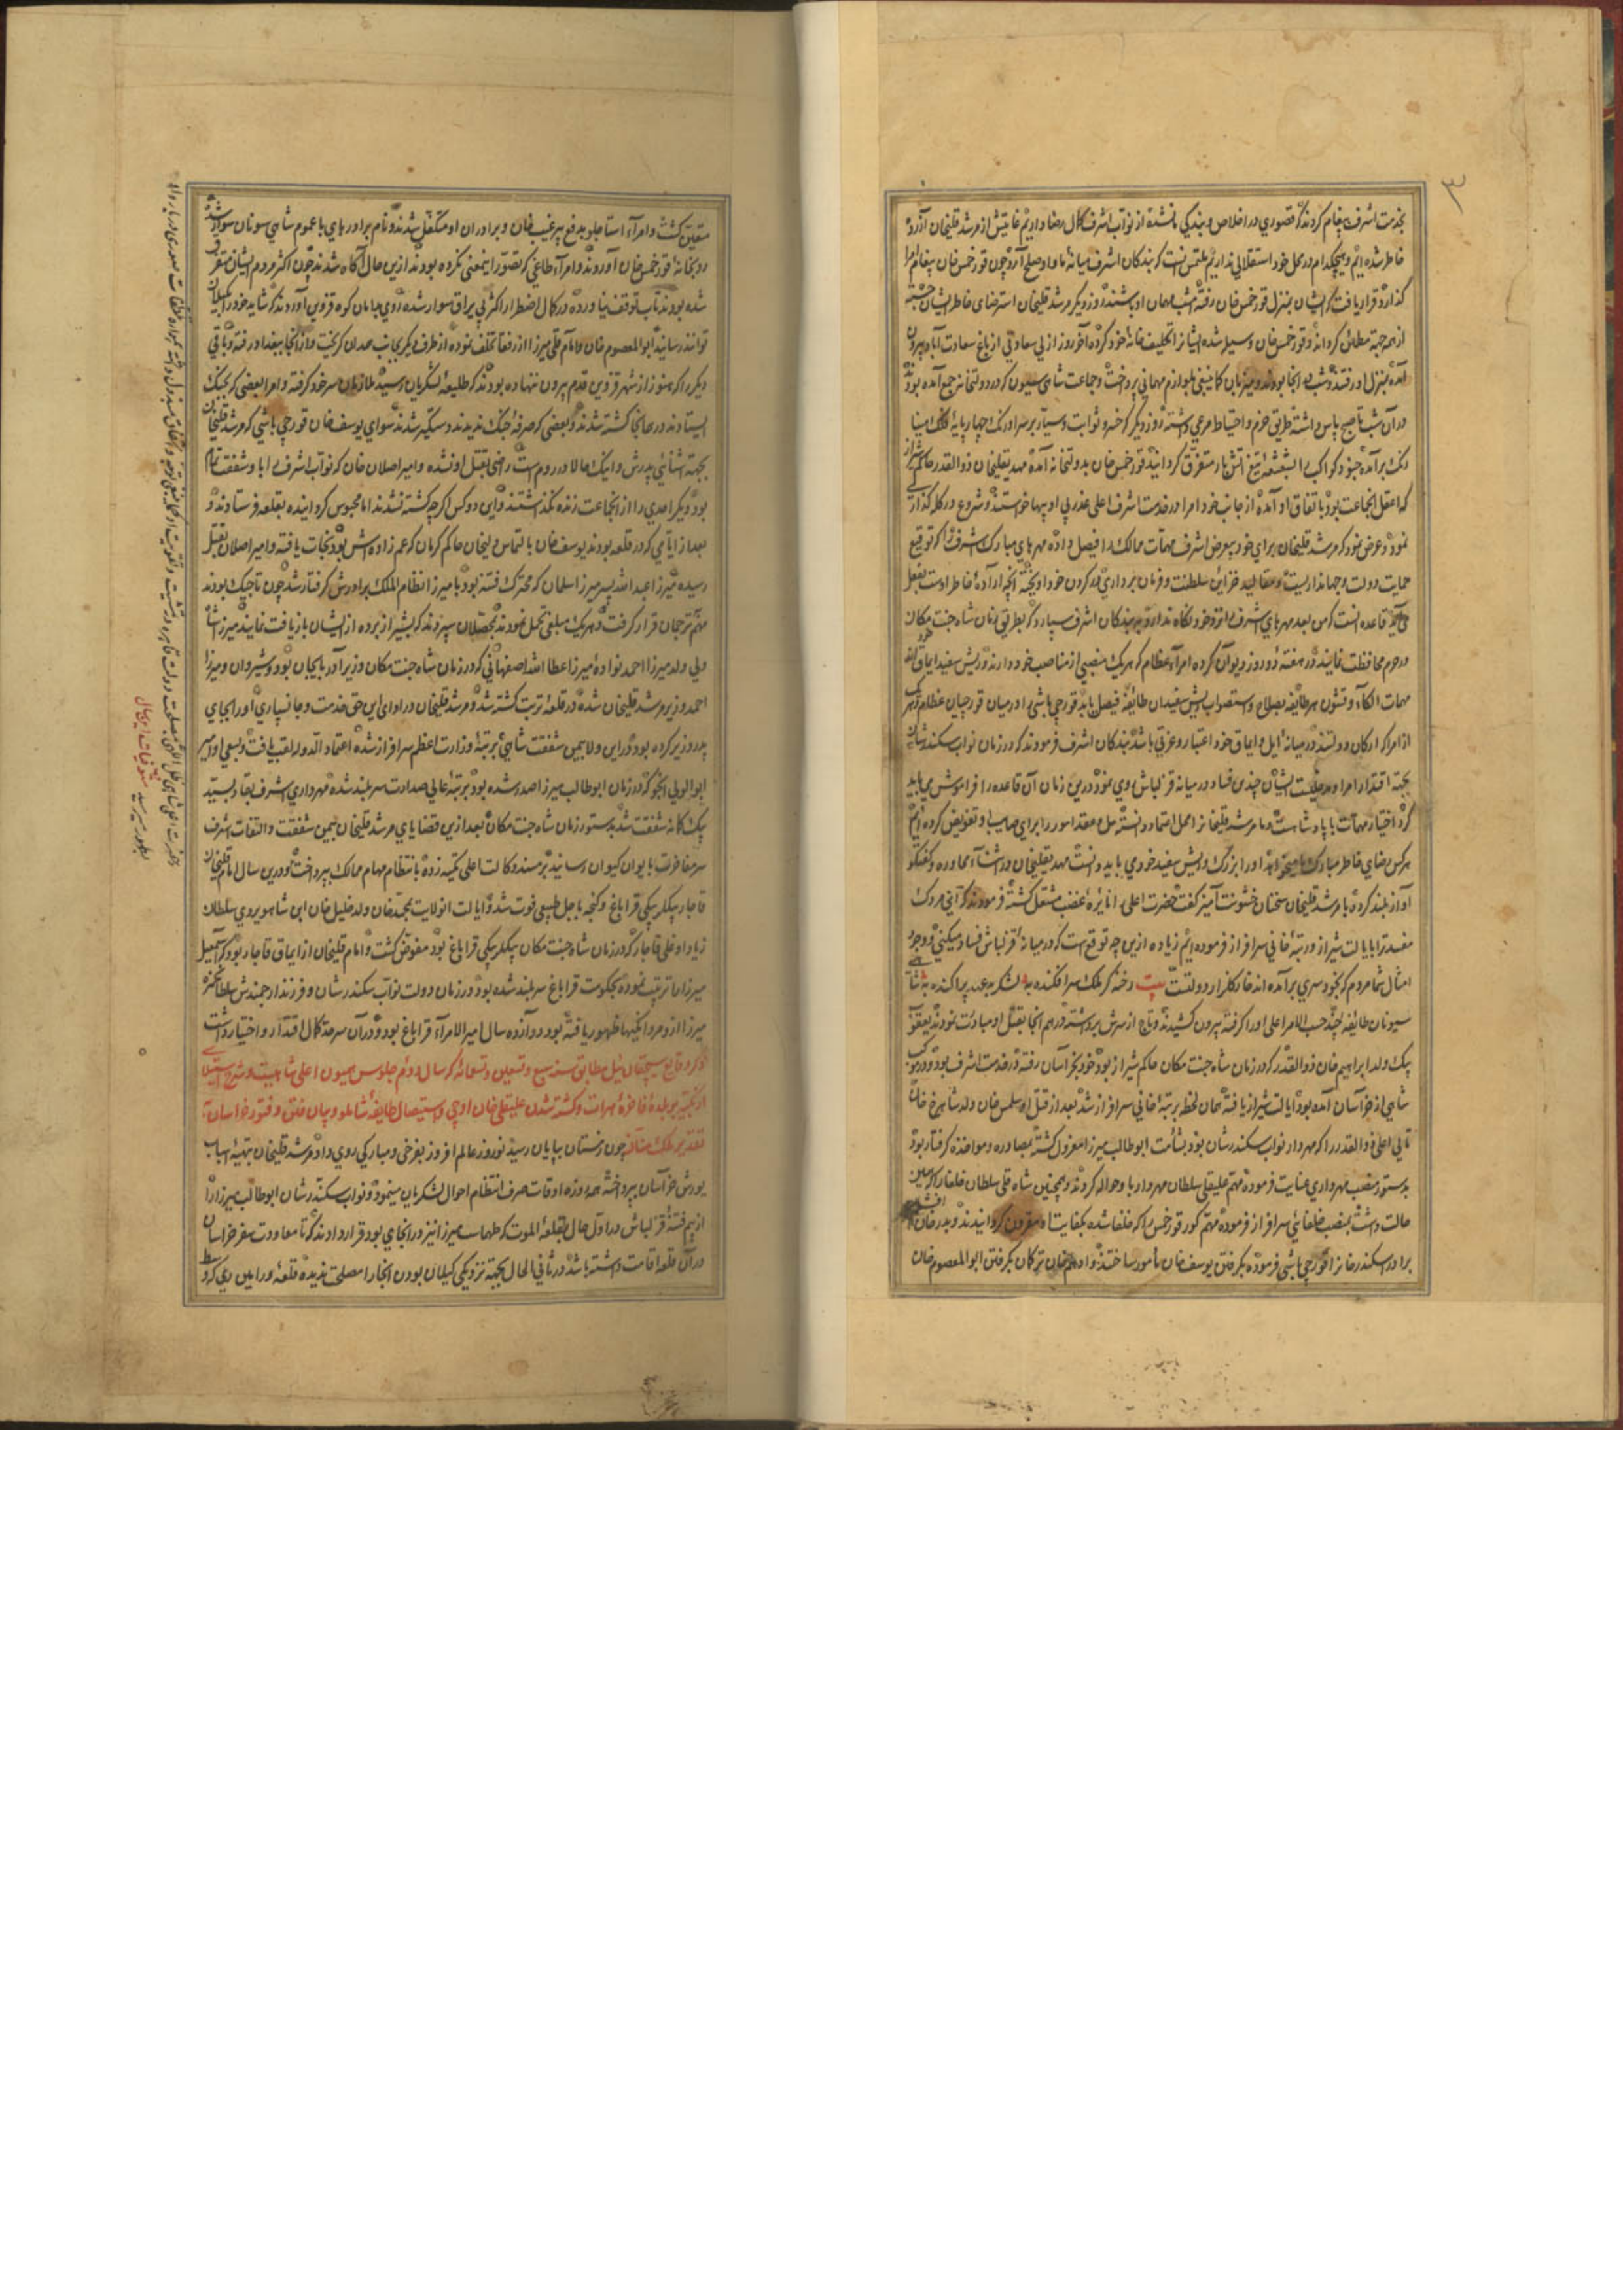 ۳
بخدمت اشرف پیغام کردند که قصوری در اخلاص و بندگی ما نشده از نواب اشرف کمال رضا داریم غایتش از مرشد قلیخان آزرده
خاطر شده ایم و هیچکدام در محل خود استقلالی نداریم ملتمس آنست که بندگان اشرف میانهٔ ما و او صلح آرد چون قورخمس خان پیغام امرا
گذارد قرار یافت که ایشان بمنزل قورخمس خان رفته شب مهمان او باشند و روز دیگر مرشد قلیخان استرضای خاطر ایشان جسته
از همه جهة مطمئن گرداند و قورخمس خان وسیله شده ایشانرا تکلیف خانهٔ خود کرده آخر روز از بی سعادتی از باغ سعادت آباد بیرون
آمده بمنزل او رفتند و شب در آنجا بودند و میزبان کما ینبغی بلوازم مهمانی پرداخت و جماعت شاهی سیون که در دولتخانه جمع آمده بودند
در آن شب تا صبح پاس داشته طریق حزم و احتیاط مرعی داشتند روز دیگر که خسرو ثوابت و سیار بر سر اورنگ چهارپایهٔ فلک مینا
رنگ برآمده جنود کواکب را بشعشعهٔ تیغ آتش بار متفرق گردانید قورخمس خان بدولتخانه آمده مهدیقلیخان ذوالقدر حاکم شیراز
که اعقل آنجماعت بود باتفاق او آمده از جانب خود و امرا در خدمت اشرف اعلی عذر بی ادبیها خواستند و شروع در گله گذاری
نمود و عرض نمود که مرشد قلیخان برای خود بعرض اشرف مهمات ممالک را فیصل داده مهرهای مبارک اشرف را که توقیع
حمایت دولت و جهانداریست و مقالید خزاین سلطنت و فرمان برداری در گردن خود آویخته آنچه ارادهٔ خاطر اوست بفعل
می آرد قاعده آنست که من بعد مهرهای اشرف را نزد خود نگاه ندارد و به بندگان اشرف سپارد که بطریق زمان شاه جنت مکان
در حرم محافظت نمایند و در هفته دو روز دیوان کرده امراء عظام که هر یک منصبی از مناصب خود دارند و ریش سفید ایماق خود
مهمات الکاء و قشون هر طایفه بصلاح و استصواب ریش سفیدان طایفه فیصل یابد قورچی باشی را در میان قورچیان عظام و هر
از امرا که ارکان دولتند در میانهٔ ایل و ایماق خود اعتبار و عزتی باشد بندگان اشرف فرمودند که در زمان نواب سکندر شان
بجهة اقتدار امرا و مدخلیت ایشان چندین فساد در میانه قزلباش روی نمود درین زمان آن قاعده را فراموش می باید
کرد اختیار مهمات با پادشاهست و ما مرشد قلیخانرا محل اعتماد دانسته حل و عقد امور را برای صایب او تفویض کرده ایم
هر کس رضای خاطر مبارک ما میخواهد او را بزرگ و ریش سفید خود می باید دانست مهدیقلیخان در اثناء محاوره و گفتگو
آواز بلند کرده با مرشد قلیخان سخنان خشونت آمیز گفت حضرت اعلی را نایرهٔ غضب مشتعل گشته فرمودند که آی مردک
مفسد ترا بایالت شیراز و رتبهٔ خانی سرافراز فرموده ایم زیاده ازین چه توقعست که در میانهٔ قزلباش فساد میکنی و وجود
امثال شما مردم که بخود سری برآمده اند خار گلزار دولتست بیت رخنه گر ملک سرافکنده به لشکر بد عهد پراکنده به
سیونان طایفهٔ چند حسب الامر اعلی او را گرفته بیرون کشیدند و تاج از سرش برداشته در هم آنجا بقتل او مبادرت نمودند یعقوب
بیک ولد ابراهیم خان ذوالقدر که در زمان شاه جنت مکان حاکم شیراز بود خود بخراسان رفته در خدمت اشرف بود و در موکب
شاهی از خراسان آمده بود ایالت شیراز یافته همان لحظه برتبهٔ خانی سرافراز شد بعد از قتل او سلمس خان ولد شاهرخ خان
تاتی اغلی ذوالقدر را که مهردار نواب سکندر شان بود بشأمت ابوطالب میرزا معزول گشته بمصادره و مواخذه گرفتار بود
بدستور منصب مهرداری عنایت فرموده مهم علیقلی سلطان مهردار باو حواله کردند و همچنین شاه قلی سلطان خلفا را که همین
حالت داشت بمنصب خلفایی سرافراز فرموده مهم کور قورخمس را که خلفا شده بکفایت او مقرون گردانیدند و بدرخان افشار
برادر اسکندر خانرا قورچی باشی فرموده بگرفتن یوسف خان مأمور ساختند و ادهم خان ترکمان بگرفتن ابوالمعصوم خان
متعین گشت و امراء استاجلو بدفع پیرغیب خان و برادران او متکفل شدند و نام برادرهای با عموم شاهی سونان سوار شده
رو بخانهٔ قورخمس خان آوردند و امراء طاغی که تصور اینمعنی نکرده بودند ازین حال آگاه شدند چون اکثر مردم ایشان متفرق
شده بودند تاب توقف نیاورده در کمال اضطرار اکثر بی یراق سوار شده روی بدامان کوه قزوین آوردند که شاید خود را بگیلان
توانند رسانید ابوالمعصوم خان و امام قلی میرزا از رفقا تخلف نموده از طرف دیگر بجانب همدان گریخت و از آنجا ببغداد رفته و باقی
دیگر را که هنوز از شهر قزوین قدم بیرون ننهاده بودند که طلیعهٔ لشکریان رسید ملازمان سر خود گرفته و امرا بعضی که بجنگ
ایستادند در همانجا کشته شدند و بعضی که صرفهٔ جنگ ندیدند دستگیر شدند سوای یوسف خان قورچی باشی که مرشد قلیخان
بجهة آشنایی پدرش و اینکه حالا در روم است راضی بقتل او نشده و امیر اصلان خان که نواب اشرف را باو شفقت تمام
بود دیگر احدی را از آنجماعت زنده نگذاشتند و این دو کس اگرچه کشته نشدند اما محبوس گردانیده بقلعه فرستادند و
بعد از ایامی که در قلعه بودند یوسف خان بالتماس ولیخان حاکم کرمان که عم زاده اش بود نجات یافته و امیر اصلان بقتل
رسیده میرزا عبدالله پسر میرزا سلمان که محرک فتنه بود با میرزا نظام الملک برادرش گرفتار شد چون تاجیک بودند
مهم ترجمان قرار گرفت و هر یک مبلغی تحمل نمودند بمحصلان سپردند که بشیراز برده از ایشان بازیافت نمایند میرزا شاه
ولی ولد میرزا احمد نوادهٔ میرزا عطا الله اصفهانی که در زمان شاه جنت مکان وزیر آذربایجان بود و شیروان و میرزا
احمد وزیر مرشد قلیخان شده در قلعهٔ تربت کشته شد و مرشد قلیخان در ادای این حق خدمت و جانسپاری او را بجای
پدر وزیر کرده بود در این ولا بیمن شفقت شاهی برتبهٔ وزارت اعظم سرافراز شده اعتماد الدوله لقب یافت و بسعی او میر
ابوالولی انجو که در زمان ابوطالب میرزا صدر شده بود برتبهٔ عالی صدارت سربلند شده مهرداری اشرف بقادر بستید
بیک کمانه شفقت شد بدستور زمان شاه جنت مکان بعد ازین قضایای مرشد قلیخان بیمن شفقت و التفات اشرف
سر مفاخرت بایوان کیوان رسانید بر مسند وکالت اعلی تکیه زده بانتظام مهام ممالک پرداخت و درین سال امام قلیخان
قاجار بیگلربیگی قراباغ و گنجه باجل طبیعی فوت شد و ایالت آنولایت بمحمد خان ولد خلیل خان ابن شاهویردی سلطان
زیاد اوغلی قاجار که در زمان شاه جنت مکان بیگلربیگی قراباغ بود مفوض گشت و امام قلیخان از ایماق قاجار بود که اسمعیل
میرزا او را تربیت نموده بحکومت قراباغ سربلند شده بود و در زمان دولت نواب سکندر شان و فرزند ارجمندش سلطان حمزه
میرزا ازو مردانگیها ظهور یافته بود دوازده سال امیر الامراء قراباغ بود و در آن سرحد کمال اقتدار و اختیار داشت
ذکر وقایع سیچقان ئیل مطابق سنه سبع و تسعین و تسعمائه که سال دوم جلوس همیون اعلی شاهیست و شرح استیلای
اوزبکیه بر بلدهٔ فاخرهٔ هرات و کشته شدن علیقلی خان او پی و استیصال طایفهٔ شاملو و بیان فتن و فتور خراسان
تقدیر ملک منان چون زمستان بپایان رسید نوروز عالم افروز بفرخی و مبارکی روی داد مرشد قلیخان بتهیهٔ اسباب
یورش خراسان پرداخته همه روزه اوقات صرف انتظام احوال لشکریان مینمود و نواب سکندر شان و ابوطالب میرزا را
از بیم فتنهٔ قزلباش در اول حال بقلعهٔ الموت که طهماسب میرزا نیز در آنجا می بود قرار دادند که تا معاودت سفر خراسان
در آن قلعه اقامت داشته باشد و در ثانی الحال بجهة نزدیکی گیلان بودن آنجا را مصلحت ندیده قلعهٔ ورامین ری که در وسط